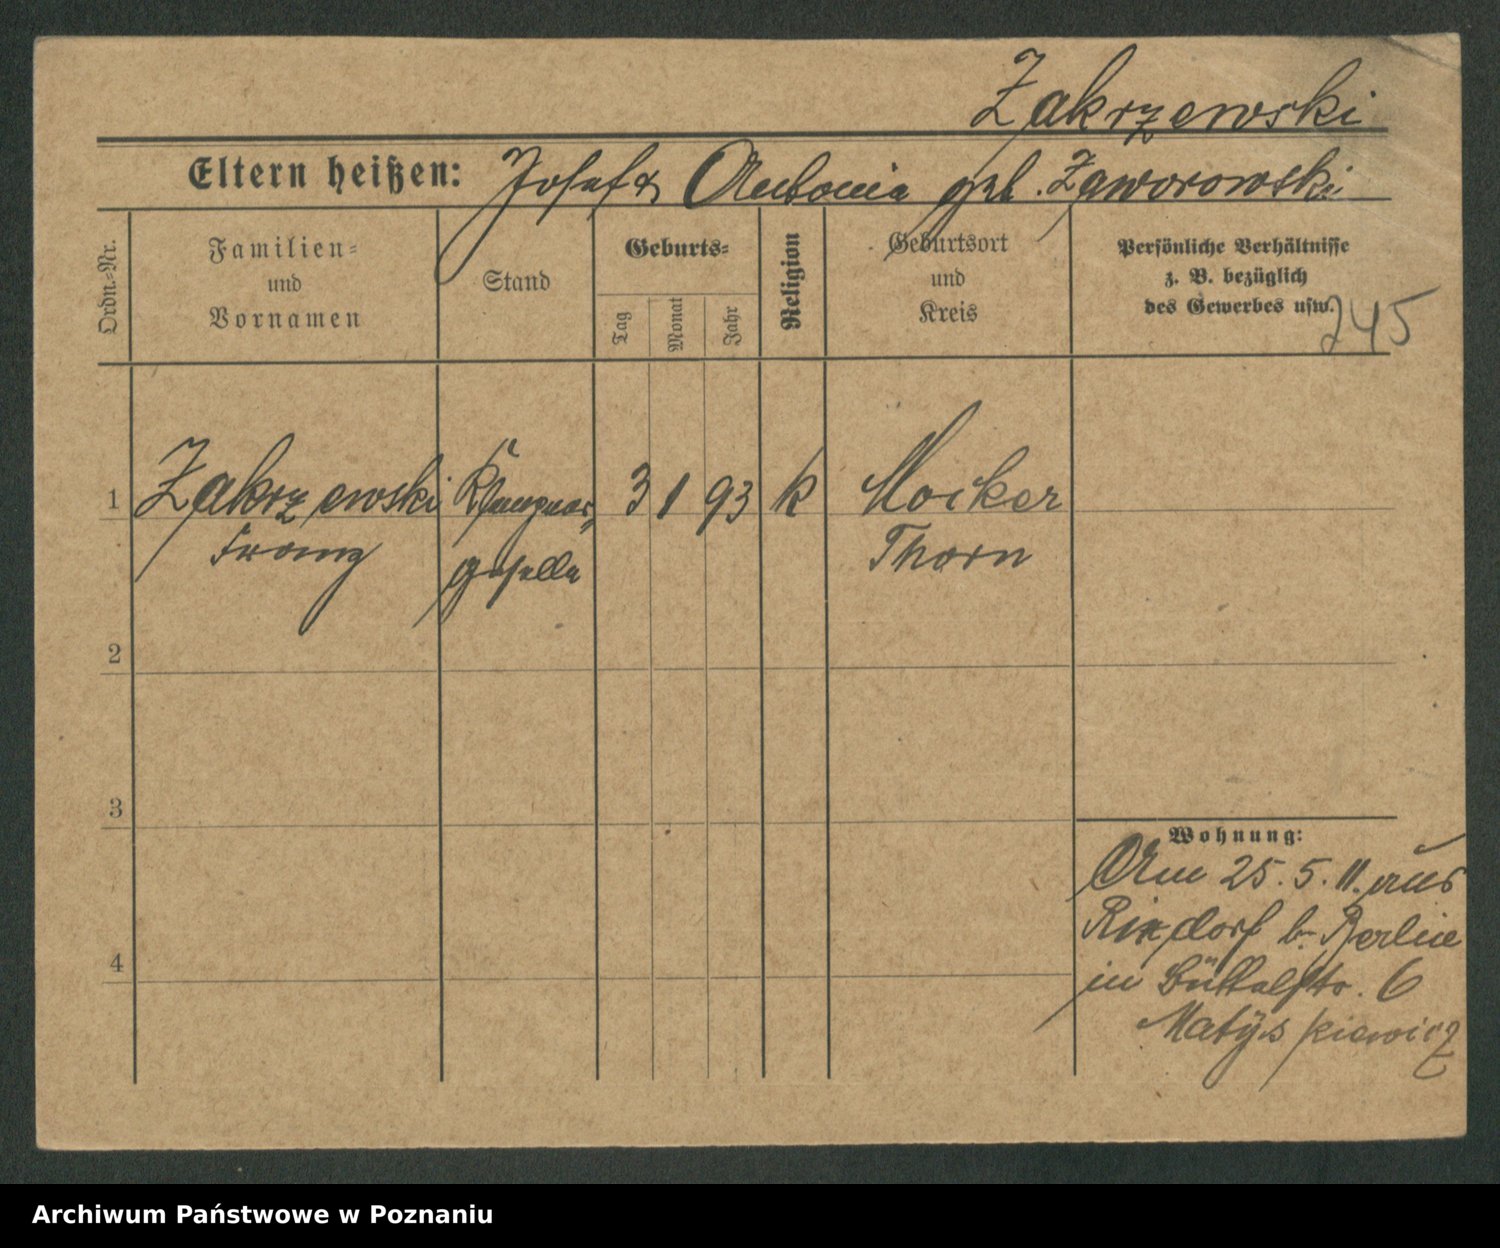 Zakrzewski
Eltern heißen: Josef & Antonia geb. Zaworowski
Ordn.-Nr.
Familien-
und
Vornamen
Stand
Geburts-
Tag
Monat
Jahr
Religion
Geburtsort
und
Kreis
Persönliche Verhältnisse
z. B. bezüglich
des Gewerbes usw.
245
1 Zakrzewski Klempner- 3 1 93 k Mocker
Franz geselle Thorn
2
3
4
Wohnung:
Am 25. 5. 11. aus
Rixdorf b. Berlin
in Büttelstr. 6
Matyskiewicz
Archiwum Państwowe w Poznaniu